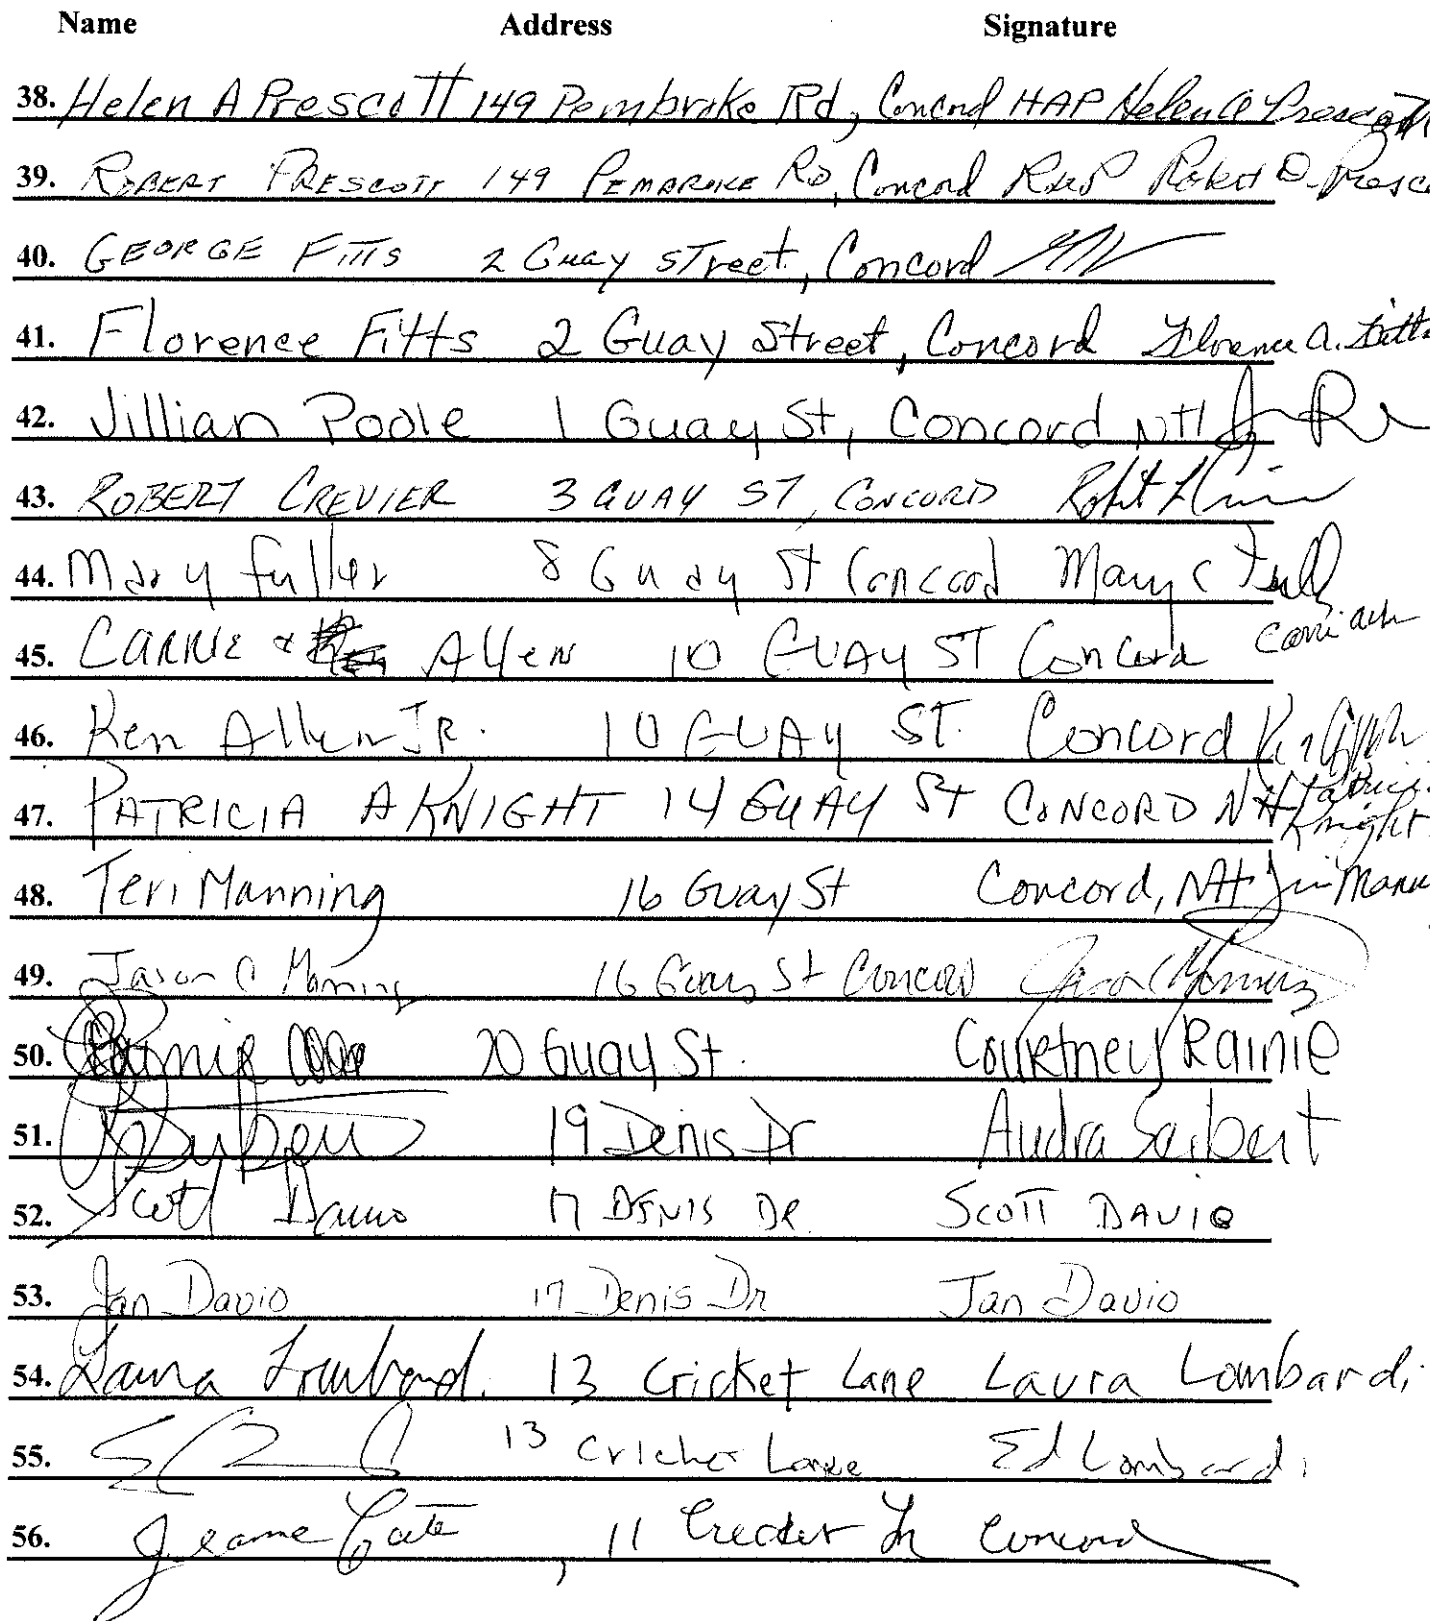 Name Address Signature
38. Helen A Prescott 149 Pembroke Rd, Concord HAP Helen A Prescott
39. ROBERT PRESCOTT 149 PEMBROKE RD, Concord Robert D. Presco
40. GEORGE FITTS 2 Guay Street, Concord
41. Florence Fitts 2 Guay Street, Concord Florence A. Fitts
42. Jillian Poole 1 Guay St, Concord NH
43. ROBERT CREVIER 3 GUAY ST, CONCORD
44. Mary Fuller 8 Guay St Concord Mary C Full
45. CARRIE & Allen 10 GUAY ST Concord
46. Ken Allen JR. 10 GUAY ST. Concord
47. PATRICIA A KNIGHT 14 GUAY St CONCORD NH Patricia Knight
48. Teri Manning 16 Guay St Concord, NH
49. Jason C Manning 16 Guay St Concord
50. 20 Guay St. Courtney Rainie
51. 19 Denis Dr Audra Seibert
52. Scott Davio 17 DENIS DR. SCOTT DAVIO
53. Jan Davio 17 Denis Dr Jan Davio
54. Laura Lombardi 13 Cricket Lane Laura Lombardi
55. 13 Cricket Lane Ed Lombardi
56. Jeanne Cate, 11 Cricket Ln Concord